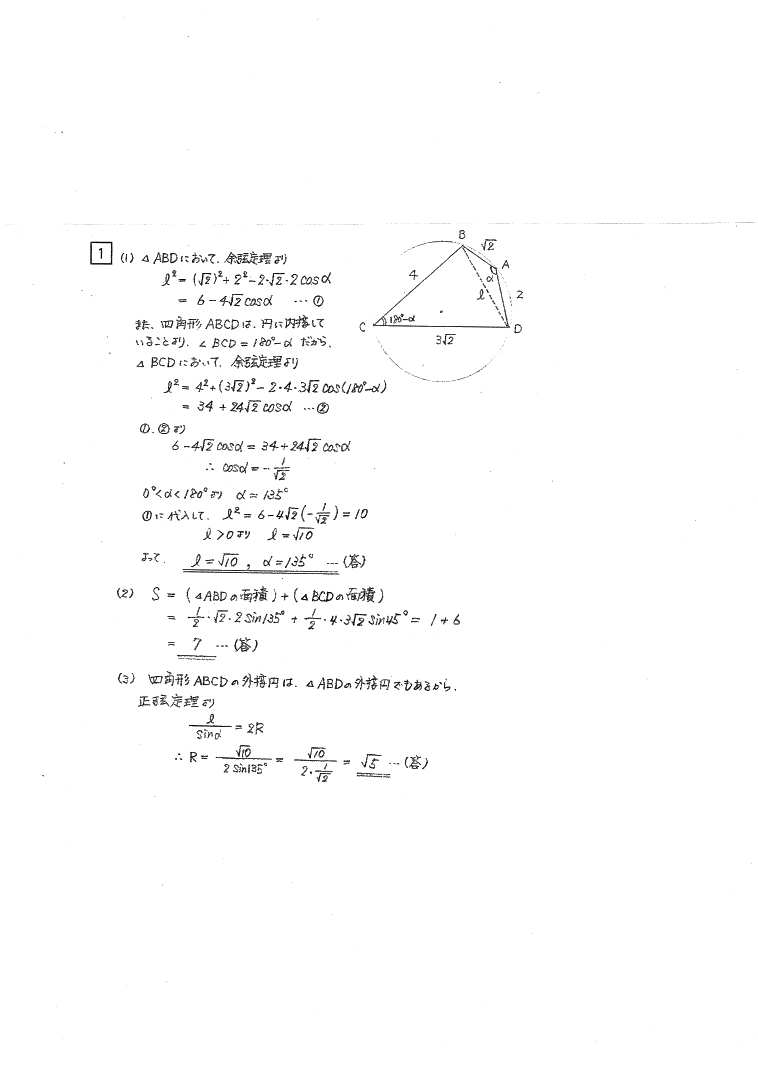 B
√2
A
α
4
l
2
C
180°-α
D
3√2
1
(1) △ABDにおいて, 余弦定理より
l² = (√2)² + 2² - 2·√2·2cosα
= 6 - 4√2cosα … ①
また, 四角形ABCDは, 円に内接して
いることより, ∠BCD = 180°-α だから,
△BCDにおいて, 余弦定理より
l² = 4² + (3√2)² - 2·4·3√2cos(180°-α)
= 34 + 24√2cosα … ②
①, ②より
6 - 4√2cosα = 34 + 24√2cosα
∴ cosα = -1/√2
0°<α<180°より α = 135°
①に代入して, l² = 6 - 4√2(-1/√2) = 10
l > 0より l = √10
よって, l = √10 , α = 135° … (答)
(2) S = (△ABDの面積) + (△BCDの面積)
= 1/2·√2·2sin135° + 1/2·4·3√2sin45° = 1 + 6
= 7 … (答)
(3) 四角形ABCDの外接円は, △ABDの外接円でもあるから,
正弦定理より
l/sinα = 2R
∴ R = √10/2sin135° = √10/2·1/√2 = √5 … (答)